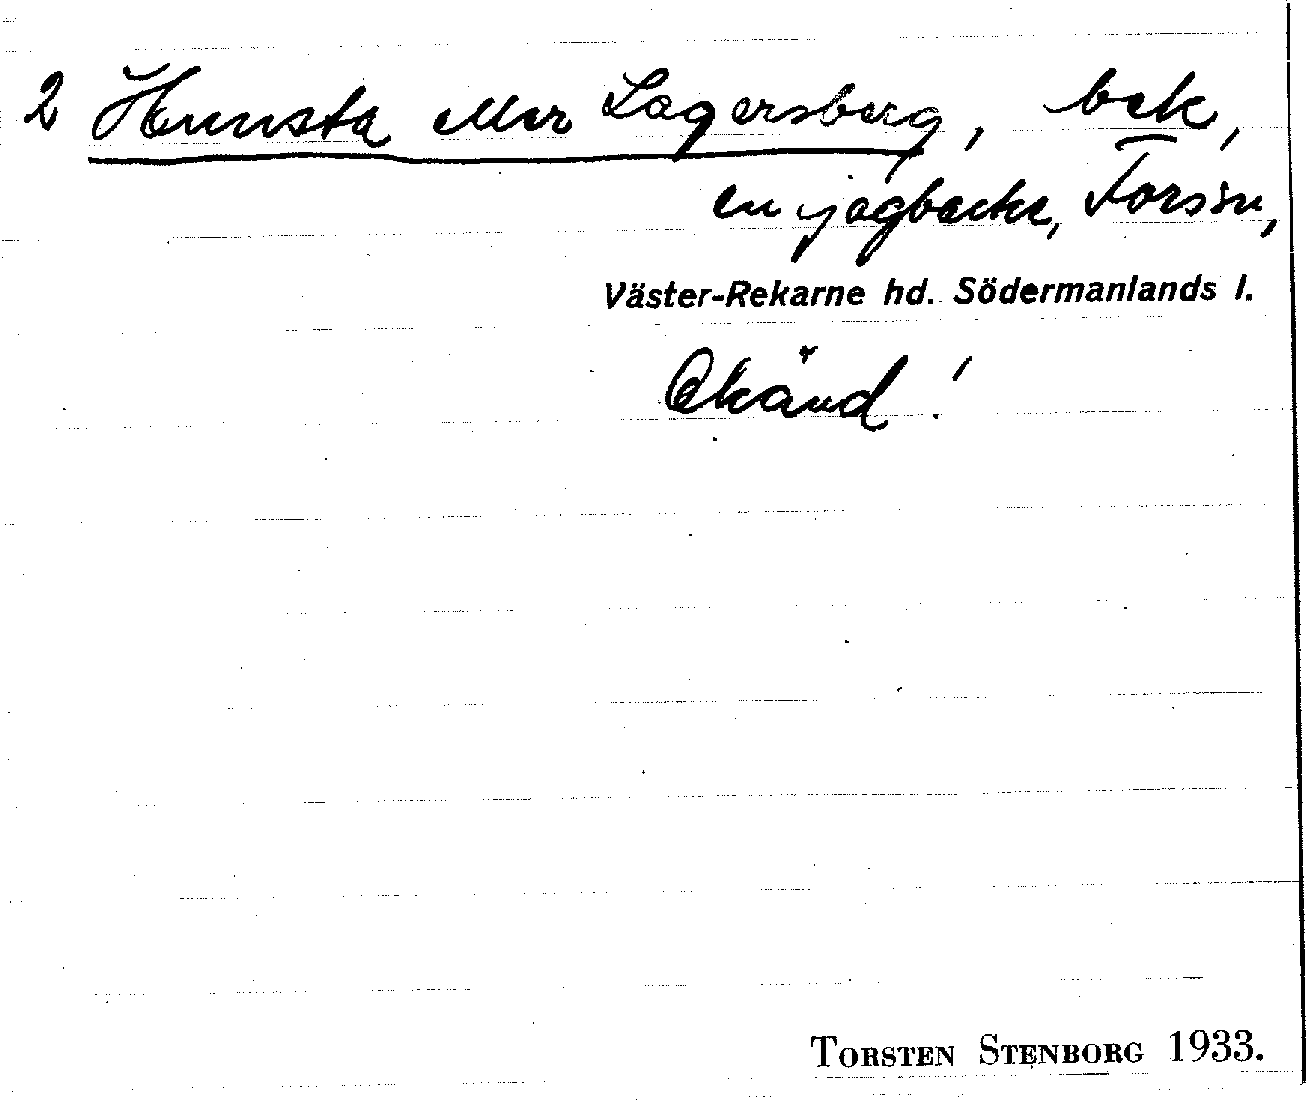 2 Hunsta eller Lagersberg, bek,
en jagbacke, Fors sn,
Väster-Rekarne hd. Södermanlands l.
Okänd!
TORSTEN STENBORG 1933.